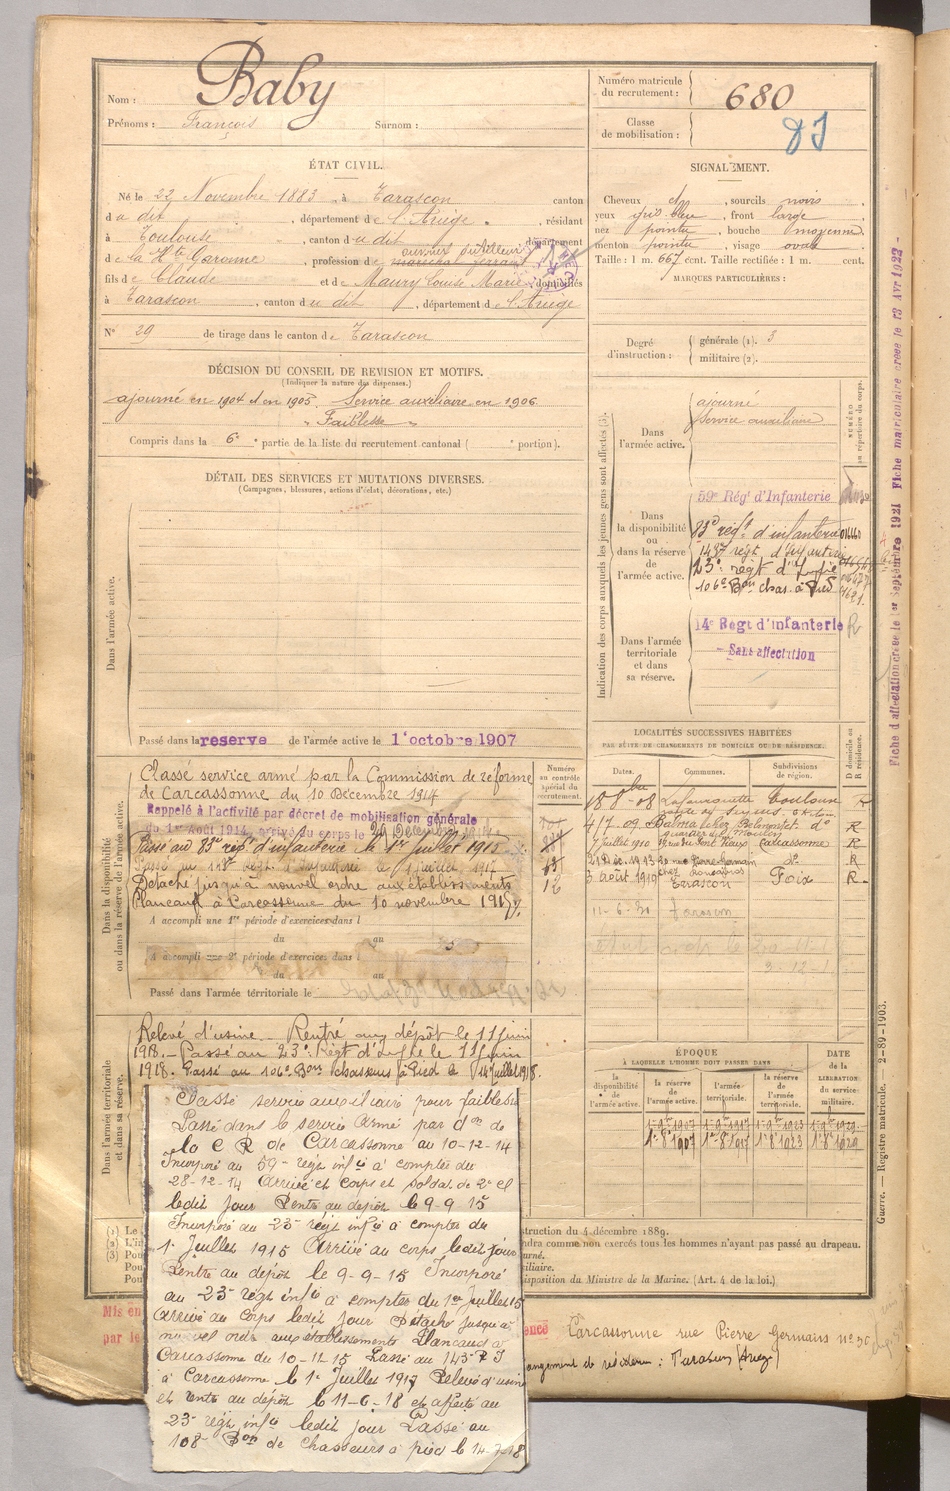 Nom : Baby
Prénoms : François Surnom :
Numéro matricule du recrutement : 680
Classe de mobilisation : 03
ÉTAT CIVIL.
Né le 22 Novembre 1883, à Tarascon canton
du dit, département de l'Ariège, résidant
à Toulouse, canton du dit, département
ouvrier distilleur
de la Hte Garonne, profession de maréchal ferrant
fils de Claude et de Maury Louise Marie, domiciliés
à Tarascon, canton du dit, département de l'Ariège
N° 29 de tirage dans le canton de Tarascon
SIGNALEMENT.
Cheveux n, sourcils noirs,
yeux gris bleu, front large
nez pointu, bouche moyenne,
menton pointu, visage ovale
Taille : 1 m. 667 cent. Taille rectifiée : 1 m. cent.
MARQUES PARTICULIÈRES :
Degré d'instruction : générale (1). 3
militaire (2).
DÉCISION DU CONSEIL DE REVISION ET MOTIFS.
(Indiquer la nature des dispenses.)
ajourné en 1904 et en 1905. Service auxiliaire en 1906
" Faiblesse "
Compris dans la 6e partie de la liste du recrutement cantonal ( portion).
DÉTAIL DES SERVICES ET MUTATIONS DIVERSES.
(Campagnes, blessures, actions d'éclat, décorations, etc.)
Dans l'armée active.
Passé dans la reserve de l'armée active le 1 octobre 1907
Indication des corps auxquels les jeunes gens sont affectés (3).
NUMÉRO au répertoire du corps.
Dans l'armée active.
ajourné
Service auxiliaire
Dans la disponibilité ou dans la réserve de l'armée active.
59e Rég' d'Infanterie
83e regt d'infanterie
143e régt. d'Infanterie
23e régt d'Infie
106e Bon chas. à Pied
Dans l'armée territoriale et dans sa réserve.
14e Regt d'infanterie R
Sans affectation
Fiche d'affectation créée le 1er Septembre 1921 Fiche matriculaire créée le 13 Avr 1922 -
Dans la disponibilité ou dans la réserve de l'armée active.
Classé service armé par la Commission de réforme
de Carcassonne du 10 Décembre 1914
Rappelé à l'activité par décret de mobilisation générale
du 1er Août 1914, arrivé au corps le 29 Décembre 1914
Passé au 83e régt d'infanterie le 1er juillet 1915
Passé au 143e Régt d'Infanterie le 1 juillet 1917
Détaché jusqu'à nouvel ordre aux établissements
Plancaud à Carcassonne du 10 novembre 1915
A accompli une 1re période d'exercices dans l
du au
A accompli une 2e période d'exercices dans l
du au
Passé dans l'armée territoriale le
Numéro au contrôle spécial du recrutement.
LOCALITÉS SUCCESSIVES HABITÉES
PAR SUITE DE CHANGEMENTS DE DOMICILE OU DE RÉSIDENCE.
Dates. Communes. Subdivisions de région. D domicile ou R résidence.
18 8bre 08 Lafourguette Toulouse R
4/7 09 Balma chez Belmontet do R
7 juillet 1910 rue du Pont Vieux Carcassonne R
31 Déc. 1913 20 rue Pierre Germain do R
3 août 1919 Tarascon Foix R
11-6-30 Tarascon
Dans l'armée territoriale et dans sa réserve.
Relevé d'usine – Rentré aux dépôt le 11 juin
1918. – Passé au 23e Régt d'Infie le 11 juin
1918. Passé au 106e Bon Chasseurs à Pied le 14 juillet 1918.
ÉPOQUE
À LAQUELLE L'HOMME DOIT PASSER DANS
la disponibilité de l'armée active. la réserve de l'armée active. l'armée territoriale. la réserve de l'armée territoriale. DATE de la LIBÉRATION du service militaire.
1-8bre 1907 1-8bre 1917 1-8bre 1923 1-8bre 1929
Classé service auxiliaire pour faiblesse
Passé dans le service armé par don de
la C R de Carcassonne au 10-12-14
Incorporé au 59e régt infie à compter du
28-12-14 Arrivé et corps et soldat de 2e cl
ledit jour Rentré au dépôt le 9-9 15
Incorporé au 23e régt infie à compter du
1er Juillet 1915 Arrivé au corps ledit jour
Rentré au dépôt le 9-9-15 Incorporé
au 23e régt infie à compter du 1er Juillet 15
Arrivé au Corps ledit jour Détaché jusqu'à
nouvel ordre aux établissements Plancaud à
Carcassonne du 10-11-15 Passé au 143e R I
à Carcassonne le 1er Juillet 1917 Relevé d'usine
et rentré au dépôt le 11-6-18 et affecté au
23e régt infie ledit jour Passé au
108e Bon de Chasseurs à pied le 14-7-18
(1) Le
(2) L'in
(3) Pou
Pou
Pou
struction du 4 décembre 1889.
ndra comme non exercés tous les hommes n'ayant pas passé au drapeau.
urné.
iliaire.
isposition du Ministre de la Marine. (Art. 4 de la loi.)
Guerre. — Registre matricule. — 2-89-1903.
Mis en
par le
ence Carcassonne rue Pierre Germains n° 30
angement de résidence : Tarascon (Ariège)